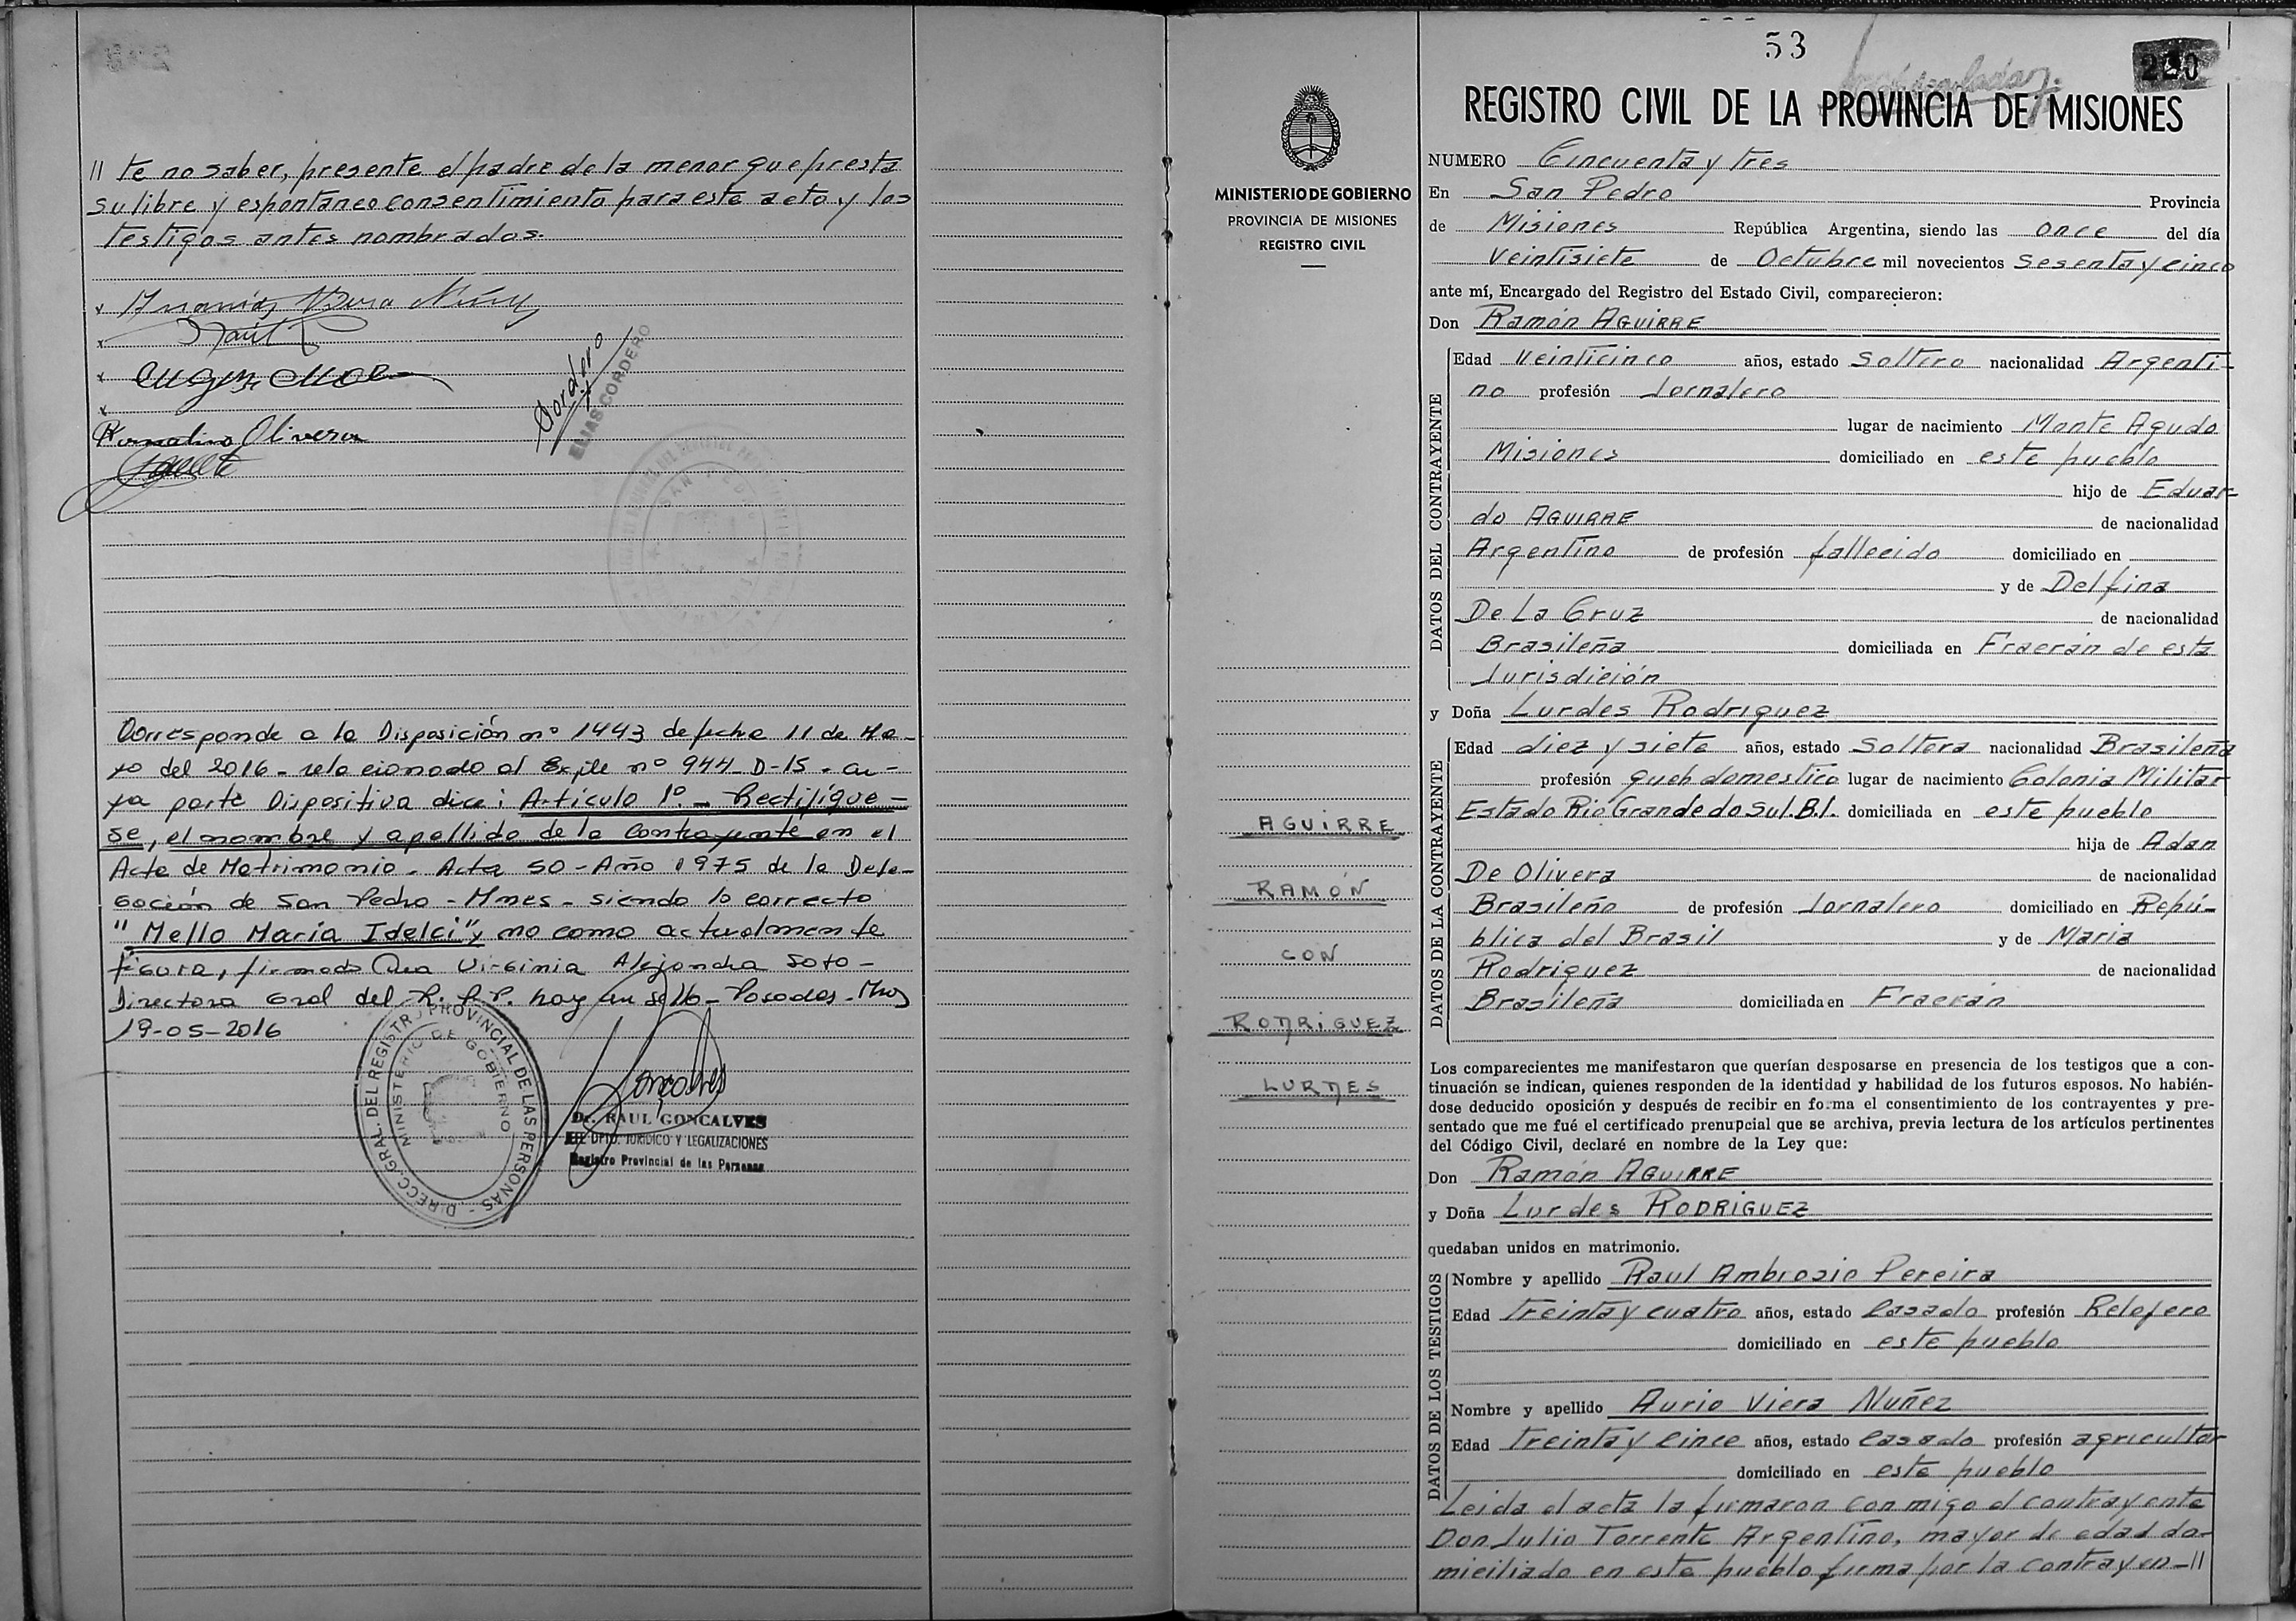 // te no saber, presente el padre de la menor que presta
su libre y espontaneo consentimiento para este acto y los
testigos antes nombrados.
Raúl
Olivera
Cordero
ELIAS CORDERO
SAN PEDRO
Corresponde a la Disposición nº 1443 de fecha 11 de Ma-
yo del 2016 - relacionado al Expte nº 944-D-15 - cu-
ya parte Dispositiva dice: Artículo 1º - Rectifíque-
se, el nombre y apellido de la contrayente en el
Acta de Matrimonio - Acta 50 - Año 1975 de la Dele-
gación de San Pedro - Mnes - siendo lo correcto
"Mello María Idelci" y no como actualmente
figura, firmado Dra Virginia Alejandra Soto -
Directora Gral del R. P. P. hay un sello - Posadas - Mnes
19-05-2016
DIRECC. GRAL. DEL REGISTRO PROVINCIAL DE LAS PERSONAS
MINISTERIO DE GOBIERNO
Goncalves
Dr. RAUL GONCALVES
DPTO. JURIDICO Y LEGALIZACIONES
Registro Provincial de las Personas
MINISTERIO DE GOBIERNO
PROVINCIA DE MISIONES
REGISTRO CIVIL
AGUIRRE
RAMÓN
CON
RODRIGUEZ
LURDES
53
220
REGISTRO CIVIL DE LA PROVINCIA DE MISIONES
NUMERO Cincuenta y tres
En San Pedro Provincia
de Misiones República Argentina, siendo las once del día
Veintisiete de Octubre mil novecientos sesenta y cinco
ante mí, Encargado del Registro del Estado Civil, comparecieron:
Don Ramón AGUIRRE
DATOS DEL CONTRAYENTE
Edad Veinticinco años, estado Soltero nacionalidad Argenti-
no profesión Jornalero
lugar de nacimiento Monte Agudo
Misiones domiciliado en este pueblo
hijo de Eduar-
do AGUIRRE de nacionalidad
Argentino de profesión fallecido domiciliado en
y de Delfina
De La Cruz de nacionalidad
Brasileña domiciliada en Fracrán de esta
Jurisdición
y Doña Lurdes Rodriguez
DATOS DE LA CONTRAYENTE
Edad diez y siete años, estado Soltera nacionalidad Brasileña
profesión queh domestico lugar de nacimiento Colonia Militar
Estado Rio Grande do Sul. B.l. domiciliada en este pueblo
hija de Adan
De Olivera de nacionalidad
Brasileño de profesión Jornalero domiciliado en Repú-
blica del Brasil y de Maria
Rodriguez de nacionalidad
Brasileña domiciliada en Fracrán
Los comparecientes me manifestaron que querían desposarse en presencia de los testigos que a con-
tinuación se indican, quienes responden de la identidad y habilidad de los futuros esposos. No habién-
dose deducido oposición y después de recibir en forma el consentimiento de los contrayentes y pre-
sentado que me fué el certificado prenupcial que se archiva, previa lectura de los artículos pertinentes
del Código Civil, declaré en nombre de la Ley que:
Don Ramón AGUIRRE
y Doña Lurdes RODRIGUEZ
quedaban unidos en matrimonio.
DATOS DE LOS TESTIGOS
Nombre y apellido Raul Ambrosio Pereira
Edad treinta y cuatro años, estado Casado profesión Relojero
domiciliado en este pueblo
Nombre y apellido Aurio Viera Nuñez
Edad treinta y cinco años, estado casado profesión agricultor
domiciliado en este pueblo
Leida el acta la firmaron conmigo el contrayente
Don Julio Torrente Argentino, mayor de edad do-
miciliado en este pueblo firma por la contrayen-//